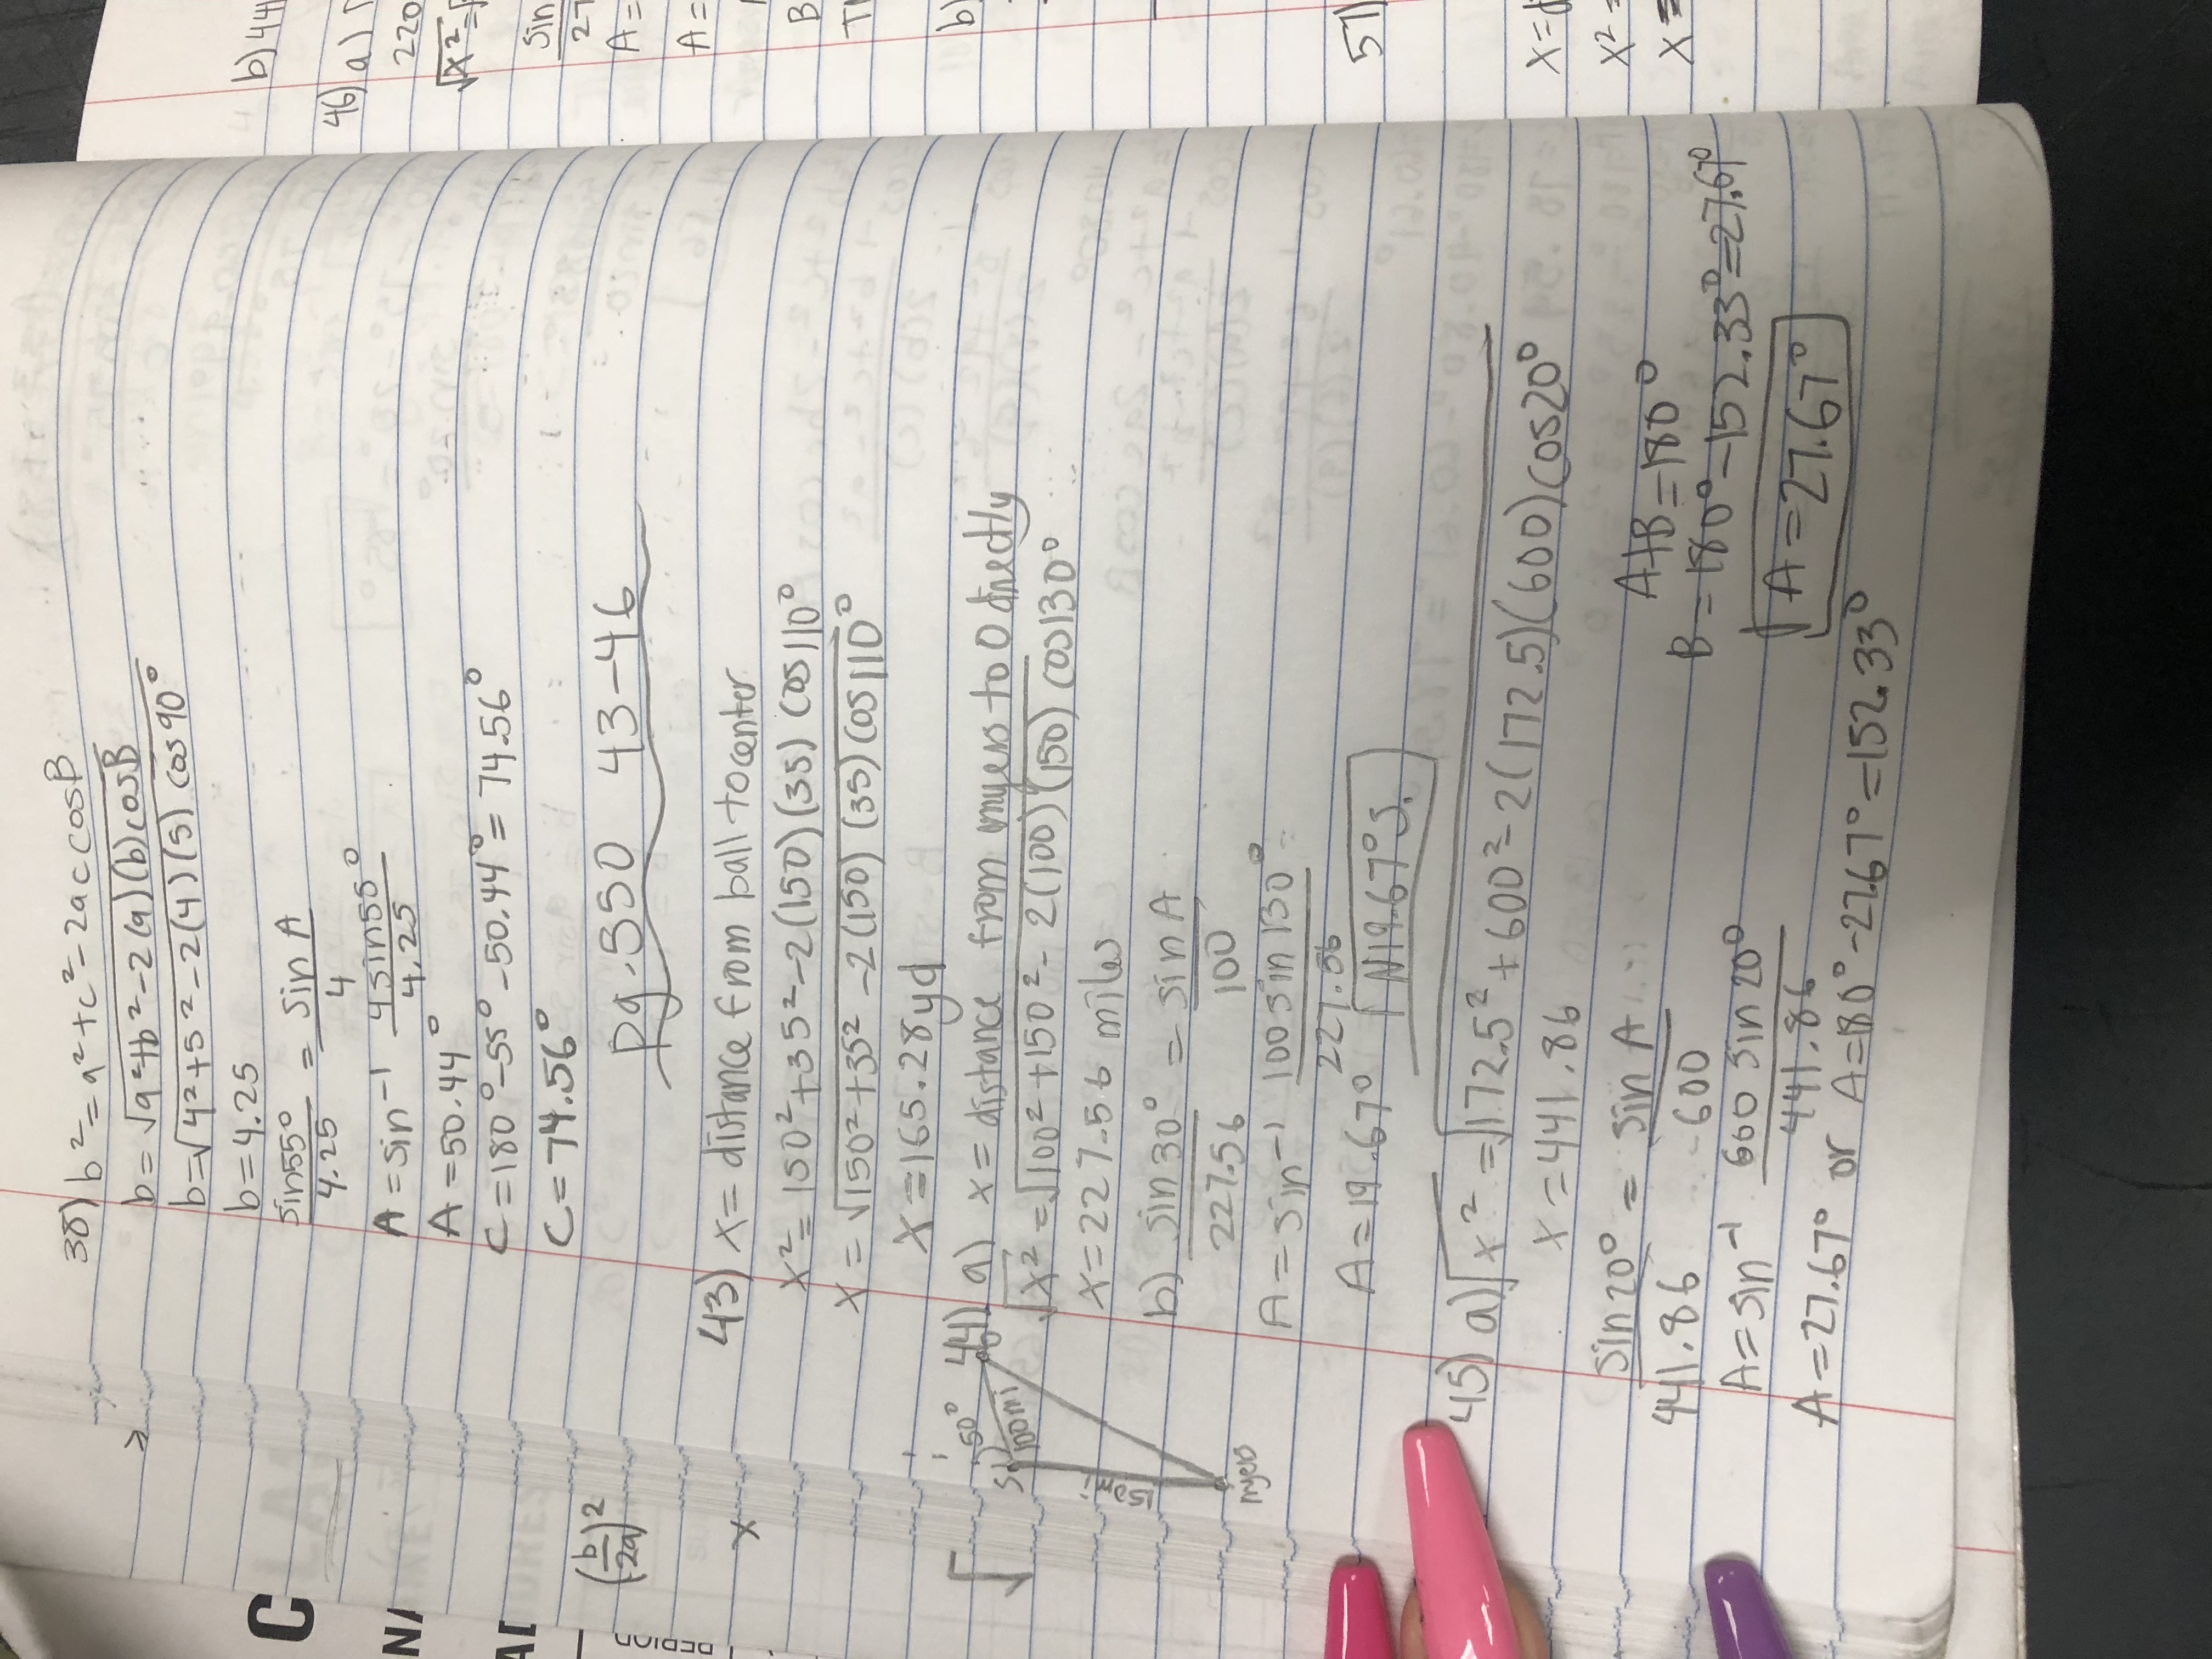 38) b² = a² + c² - 2ac cosB
b = √a²+b²-2(a)(b)cosB
b = √4²+5²-2(4)(5) cos90°
b = 4.25
sin55°/4.25 = sin A/4
A = sin⁻¹ 4sin55°/4.25
A = 50.44°
C = 180° - 55° - 50.44° = 74.56°
C = 74.56°
(b/2a)²
pg. 550 43-46
43) x = distance from ball to center
x
x² = 150² + 35² - 2(150)(35) cos110°
x = √150²+35² - 2(150)(35)cos110°
x = 165.28yd
50°
100mi
150mi
myers
44) a) x = distance from myers to O directly
√x² = √100² + 150² - 2(100)(150) cos130°
x = 227.56 miles
b) sin30°/227.56 = sinA/100
A = sin⁻¹ 100 sin 130°/227.56
A = 19.67° N19.67°S.
45) a) √x² = √172.5² + 600² - 2(172.5)(600) cos20°
x = 441.86
sin20°/441.86 = sin A/600
A = sin⁻¹ 600 sin20°/441.86
A = 27.67° or A = 180° - 27.67° = 152.33°
A+B = 180°
B = 180° - 152.33° = 27.67°
A = 27.67°
C
b) 441
46) a)
220
√x² =
sin
27
A =
A =
B
b)
57)
x =
x² =
x =